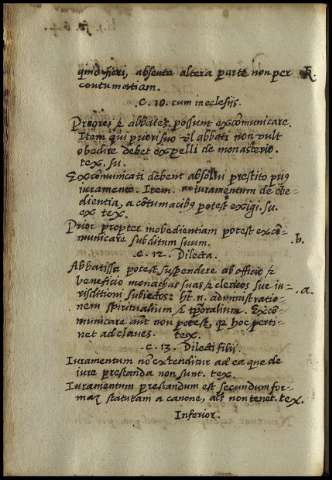 quid fieri, absente altera parte non per
contumatiam.
c. 10. cum in eclesijs.
Priores & abbates possunt excomunicare.
Item qui priori suo vel abbati non vult
obedire debet expelli de monasterio.
tex. su.
Excomunicati debent absolvi prestito prius
iuramento. Item iuramentum de obe-
dientia, a cotumacibus potest exigi. su.
ex tex.
Prior propter inobedientiam potest exco-
municare subditum suum.
b.
c. 12. Dilecta.
Abbatissa potest suspendere ab officio &
beneficio monachas suas & clericos sue iu-
risditioni subiectos
a.
administratio-
nem spiritualium & temporalium. Exco-
municare autem non potest, quia hoc perti-
net ad claves. tex.
c. 13. Dilecti filij.
Iuramentum no extenditur ad ea que de
iure prestanda non sunt. tex.
Iuramentum prestandum est secundum for-
mam statutam a canone, alias non tenet. tex.
Inferior.